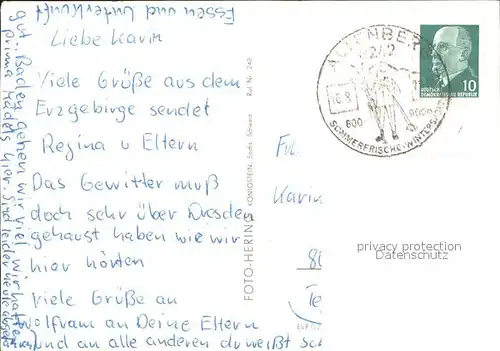 Liebe Karin
Viele Grüße aus dem
Erzgebirge sendet
Regina u Eltern
Das Gewitter muß
doch sehr über Dresden
gehaust haben wie wir
hier hörten
Viele Grüße an
Wolfram an Deine Eltern
und an alle anderen du weißt
Essen und Unterkunft
gut. Baden gehen wir viel, wir hatten
prima Mädels hier. Sind leider heute
FOTO-HERING KÖNIGSTEIN, Sächs. Schweiz Ruf Nr. 242
ALTENBERG
SOMMERFRISCHE · WINTERSPORT
600
900m
DEUTSCHE
DEMOKRATISCHE REPUBLIK
10
Fr.
Karin
80
privacy protection
Datenschutz